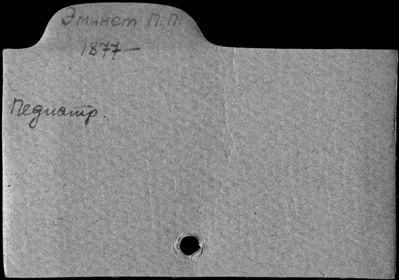 Эминет П.П.
1877—
Педиатр.